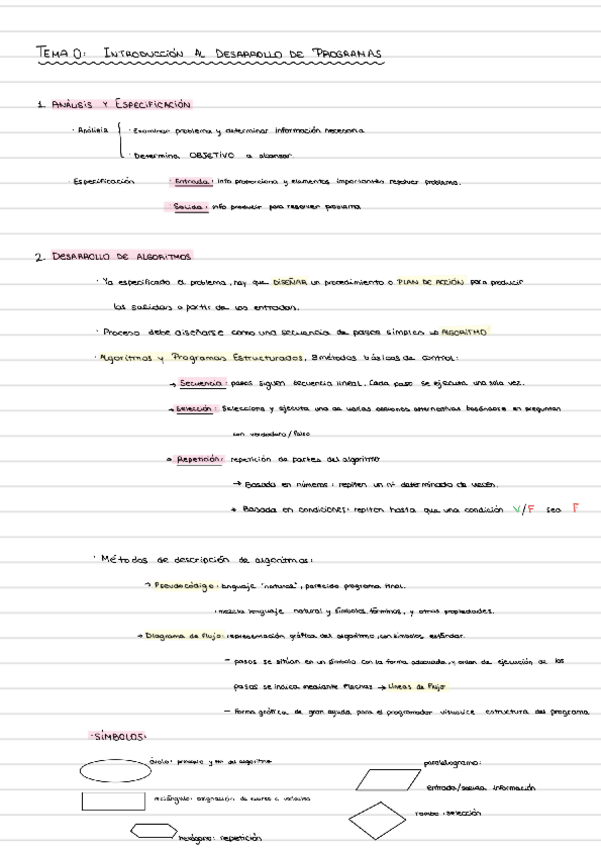 TEMA 0: INTRODUCCIÓN AL DESARROLLO DE PROGRAMAS
1. ANÁLISIS Y ESPECIFICACIÓN
· Análisis { · Examinar problema y determinar información necesaria.
· Determina OBJETIVO a alcanzar
· Especificación · Entrada: info proporciona y elementos importantes resolver problema.
· Salida: info producir para resolver problema
2. DESARROLLO DE ALGORITMOS
· Ya especificado el problema, hay que DISEÑAR un procedimiento o PLAN DE ACCIÓN para producir
las salidas a partir de las entradas.
· Proceso debe diseñarse como una secuencia de pasos simples → ALGORITMO
· Algoritmos y Programas Estructurados, 3 métodos básicos de control:
→ Secuencia: pasos siguen secuencia lineal. Cada paso se ejecuta una sola vez.
→ Selección: Selecciona y ejecuta una de varias acciones alternativas basándose en preguntas
con verdadero/falso
→ Repetición: repetición de partes del algoritmo
→ Basada en números: repiten un nº determinado de veces.
→ Basada en condiciones: repiten hasta que una condición V/F sea F
· Métodos de descripción de algoritmos:
→ Pseudocódigo: lenguaje "natural", parecido programa final.
· mezcla lenguaje natural y símbolos, términos, y otras propiedades.
→ Diagrama de flujo: representación gráfica del algoritmo, con símbolos estándar.
- pasos se sitúan en un símbolo con la forma adecuada, y orden de ejecución de los
pasos se indica mediante flechas → Líneas de flujo
- Forma gráfica de gran ayuda para el programador visualice estructura del programa
· SÍMBOLOS:
óvalo: principio y fin del algoritmo
paralelogramo:
entrada/salida información
rectángulo: asignación de valores a variables
rombo: selección
hexágono: repetición